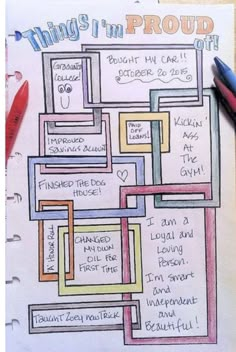 Things I'm PROUD of!
Graduated
College!
BOUGHT MY CAR!!
OCTOBER 20 2015
PAID
OFF
LOANS!
KICKIN'
ASS
At
The
GYM!
IMPROVED
SAVINGS ACCOUNT
FINISHED THE DOG
HOUSE!
A HONOR ROLL
CHANGED
MY OWN
OIL FOR
FIRST TIME
I am a
Loyal and
Loving
Person.
I'm smart
and
Independent
and
Beautiful!
TAUGHT ZOEY NEW TRICK